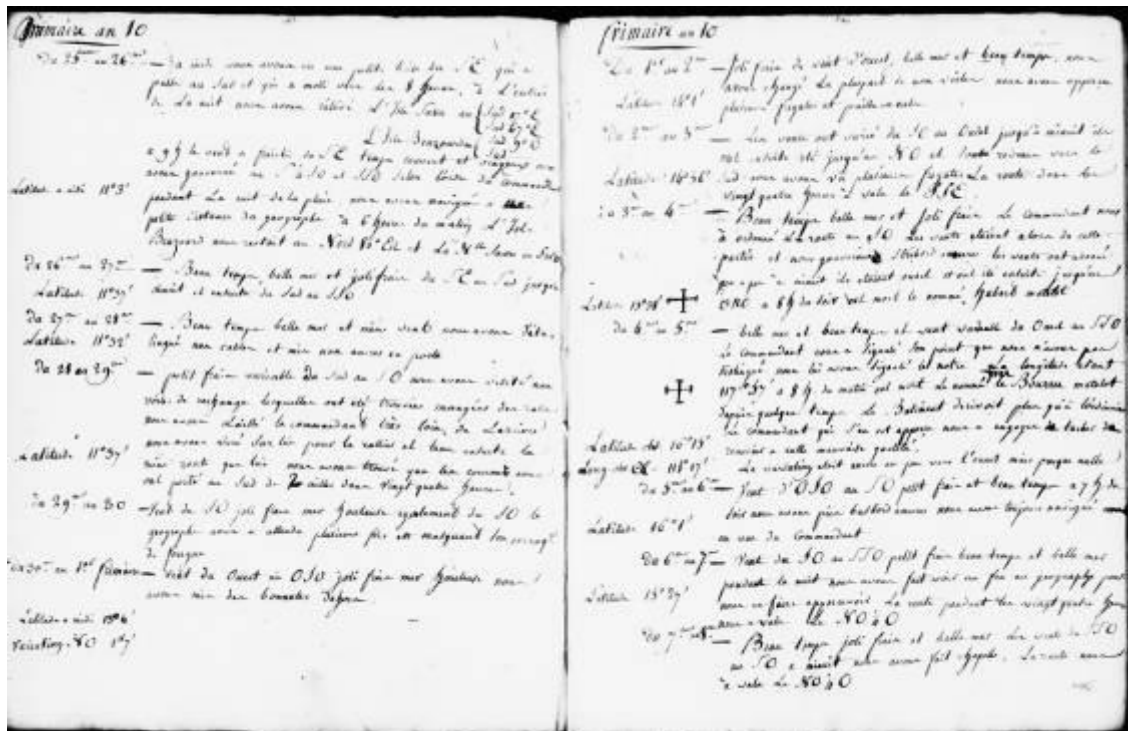 frimaire an 10
Du 25 au 26 — à midi nous avons eu une petite brise du SE qui a
passé au Sud et qui a molli vers les 8 heures, à l'entrée
de la nuit nous avons relévé L'Ile Savu au Sud 17° E
Sud 67° E
L'Ile Benjoar Sud 9° O
Sud
à 9 h le vent a fraichi du SE temps couvert et orageux nous
avons gouverné au SO et SSO selon l'ordre du Commandant
Latitude a midi 11°3'
pendant la nuit de la pluie, nous avons navigué a une
petite distance du geographe à 6 heures du matin L'Isle
Benjoard nous restait au Nord 86° Est et La Nlle Savu au
Du 26 au 27 — Beau temps, belle mer et joli frais du SE au Sud jusqu'a
Latitude 11°37'
minuit et ensuite du Sud au SSO
Du 27 au 28 — Beau temps belle mer et même vent nous avons déta-
Latitude 11°32'
lingué nos cables et mis nos ancres en poste
Du 28 au 29 — petit frais variable du Sud au SO nous avons visité nos
voiles de rechange lesquelles ont été trouvées mangées des rats
nous avons laissé le commandant très loin de L'arrière
nous avons viré sur lui pour le rallier et tenu ensuite le
Latitude 11°37'
même vent que lui nous avons trouvé que les courants nous
ont porté au Sud de milles dans vingt quatre heures.
Du 29 au 30 — Vent de SO joli frais mer houleuse egalement du SO le
geographe nous a attendu plusieurs fois en masquant son perroq.t
de fougue
Du 30 au 1er frimaire — vent du Ouest au OSO joli frais mer houleuse nous
avons mis des bonnettes dehors
Latitude a midi 13°6'
Variation NO 1°7'
frimaire an 10
Du 1er au 2 — Joli frais de vent d'ouest, belle mer et beau temps, nous
avons changé la pluspart de nos voiles nous avons apperçu
Latitude 14°1'
plusieurs fregates et paille en cu.
Du 2 au 3 — Les vents ont varié du SO au Ouest jusqu'à minuit ils
ont ensuite été jusqu'au NO et sont revenus vers le
Latitude 14°36'
Sud nous avons vu plusieurs fregates La route dans les
vingt quatre heures a valu le SSE
Du 3 au 4 — Beau temps belle mer et Joli frais Le commandant nous
à ordonné La route au SO Les vents etoient alors de cette
partie et nous gouvernions les vents ont
peu a peu a minuit ils etoient ouest et ont été ensuite jusqu'au
Latitude 15°28'
ONO a 8 h du soir est mort le nommé,
Du 4 au 5 — belle mer et beau temps et vent variable du Ouest au SSO
Le commandant nous a signalé son point que nous n'avons pas
distingué nous lui avons signalé le notre longitude étant
117°57' a 8 h du matin est mort Le nommé le Bourse matelot
depuis quelque temps Le Batiment derivoit plus qu'à l'ordinaire
Le commandant qui s'en est apperçu nous a engagés a tacher de
Latitude obs 16°13'
remedier a cette mauvaise qualité.
Long. obs 118°17'
La variation etoit encore un peu vers l'ouest mais presque nulle
Du 5 au 6 — Vent d'OSO au SO petit frais et beau temps a 7 h du
soir nous avons pris basbord amures nous avons toujours navigué
Latitude 16°1'
en vue du Commandant
Du 6 au 7 — Vent du SO au SSO petit frais beau temps et belle mer
pendant la nuit nous avons fait voir un feu au geographe pour
Latitude 15°27'
nous en faire appercevoir La route pendant les vingt quatre heures
a valu Le NO¼O
Du 7 au 8 — Beau temps joli frais et belle mer Les vents du SSO
au SO a minuit nous avons fait chapelle. La route nous
a valu Le NO¼O